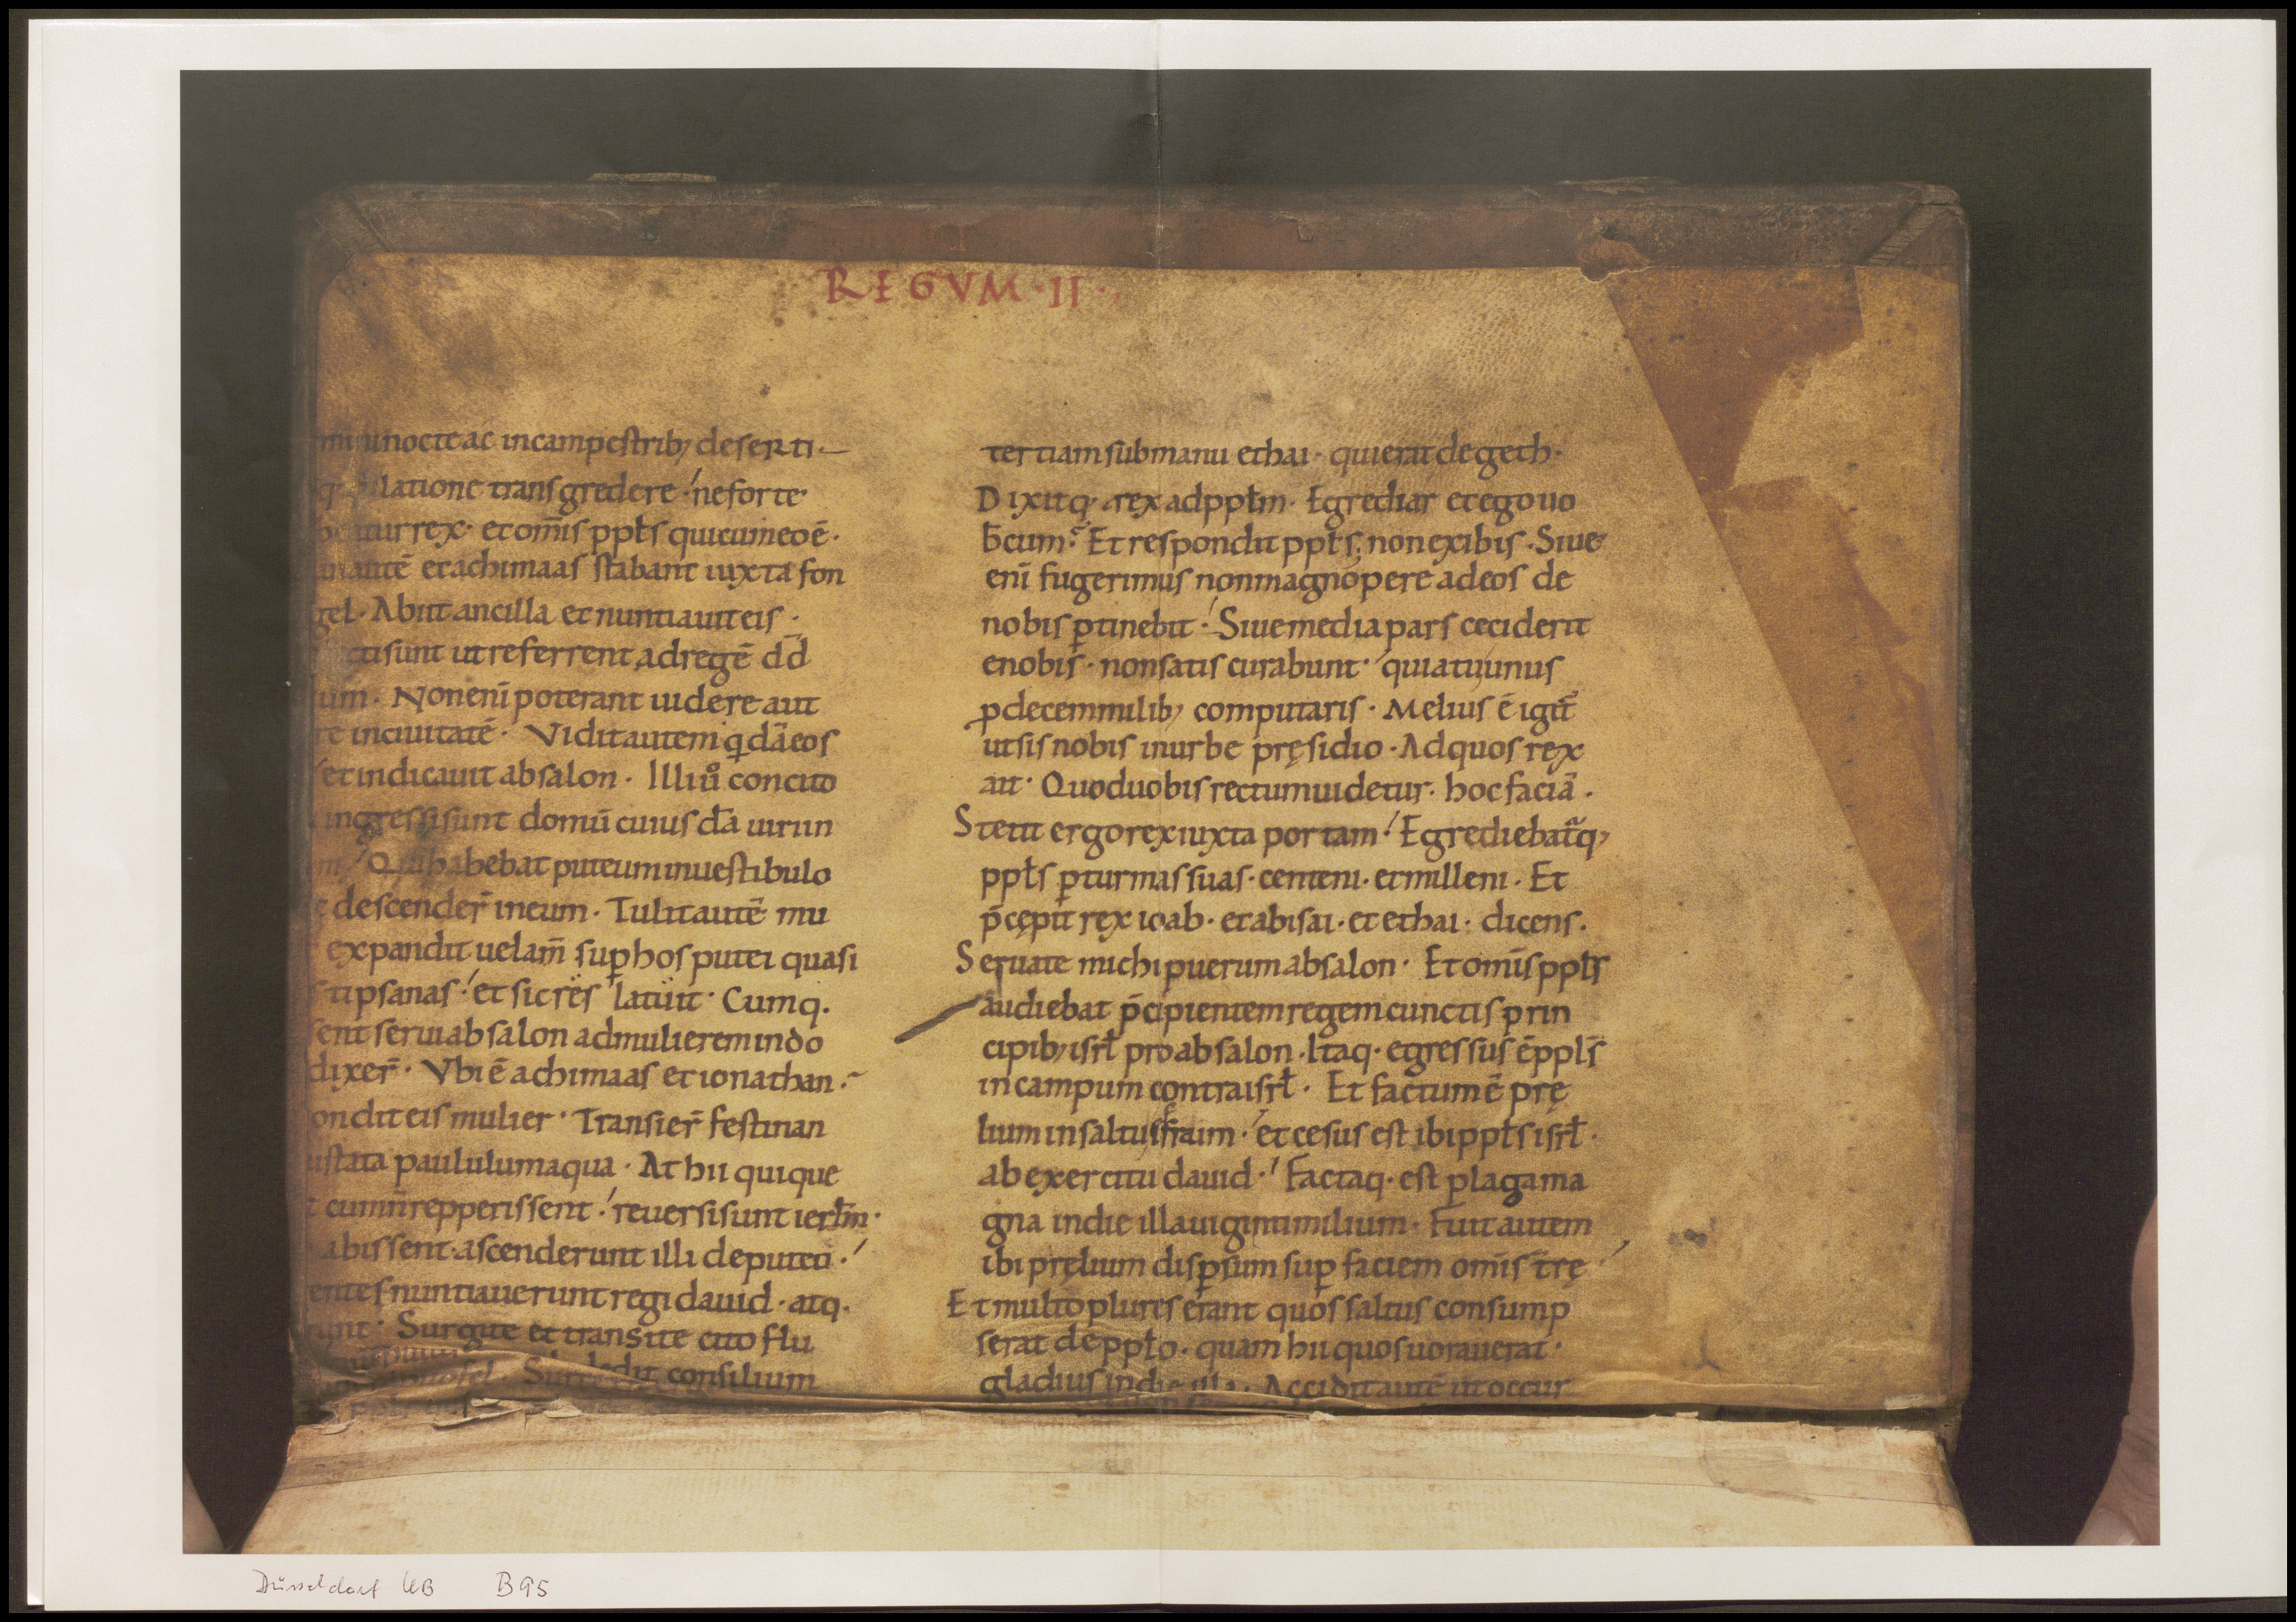 REGVM·II·
nocte ac in campestrib; deserti·
dilatione transgredere·' ne forte
tur rex· et om̄is ppł's qui cum eo ē·
autē et achimaas stabant iuxta fon
gel· Abiit ancilla et nuntiauit eis·
sunt ut referrent ad regē dd̄
um· Non eni poterant uidere aut
re in ciuitatē· Vidit autem qdā eos
et indicauit absalon· Illi ů concito
ingressi sunt domū cuius dā uiri in
Qui habebat puteum in uestibulo
descender̄ in eum· Tulit autē mu
expandit uelam̄ sup hos putei quasi
tipsanas·' et sic res latuit· Cumq·
sent serui absalon ad mulierem in do
dixer̄· Vbi ē achimaas et ionathan·
ondit eis mulier· Transier̄ festinan
ustata paululum aqua· At hii qui que
cum n̄ repperissent·' reuersi sunt ierłm·
abissent· ascenderunt illi de puteo·'
entes nuntiauerunt regi dauid· atq·
runt· Surgite et transite cito flu
consilium
tertiam sub manu ethai· qui erat de geth·
Dixitq· rex ad ppłm· Egrediar et ego uo
b̄cum· Et respondit ppł's· non exibis· Siue
eni fugerimus non magnopere ad eos de
nobis ptinebit·' Siue media pars ceciderit
e nobis· non satis curabunt· quia tu unus
p decem milib; computaris· Melius ē igit̄
ut sis nobis in urbe pręsidio· Ad quos rex
ait· Quod uobis rectum uidetur· hoc faciā·
Stetit ergo rex iuxta portam·' Egrediebat̄q;
ppł's p turmas suas· centeni· et milleni· Et
p̄cępit rex ioab· et abisai· et ethai· dicens·
Seruate michi puerum absalon· Et om̄is ppłs
audiebat p̄cipientem regem cunctis prin
cipib; isrł pro absalon· Itaq· egressus ē ppłs
in campum contra isrł· Et factum ē prę
lium in saltu effraim·' et cesus est ibi ppłs isrł·
ab exercitu dauid·' Factaq· est plaga ma
gna in die illa uiginti milium· Fuit autem
ibi pręlium dispsum sup faciem om̄is tr̄ę
Et multo plures erant quos saltus consump
serat de ppło· quam hii quos uorauerat·
gladius in die illa· Accidit autē ut occur
Düsseldorf UB B95